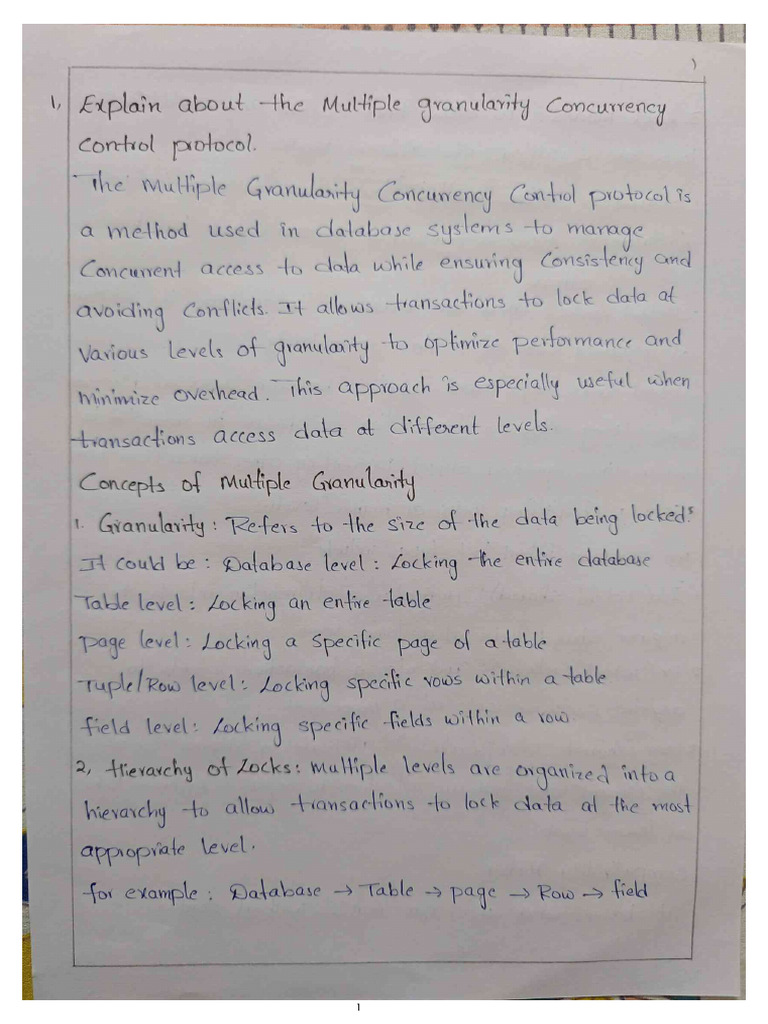 1
1, Explain about the Multiple granularity Concurrency
Control protocol.
The Multiple Granularity Concurrency Control protocol is
a method used in database systems to manage
Concurrent access to data while ensuring Consistency and
avoiding Conflicts. It allows transactions to lock data at
Various levels of granularity to optimize performance and
minimize overhead. This approach is especially useful when
transactions access data at different levels.
Concepts of Multiple Granularity
1. Granularity: Refers to the size of the data being locked.
It could be: Database level: Locking the entire database
Table level: Locking an entire table
page level: Locking a specific page of a table
Tuple/Row level: Locking specific rows within a table
field level: Locking specific fields within a row
2, Hierarchy of Locks: Multiple levels are organized into a
hierarchy to allow transactions to lock data at the most
appropriate level.
for example: Database → Table → page → Row → field
1